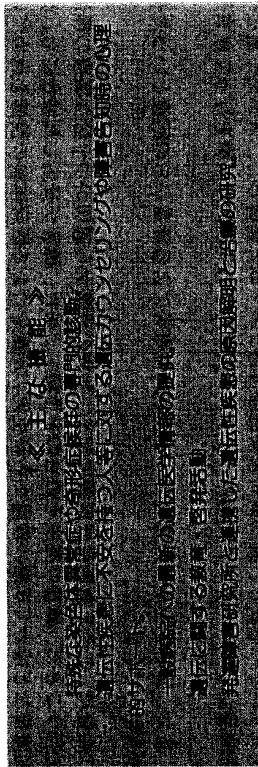 ≪主な機能≫
特殊な染色体異常症や奇形症候群の専門的診断
遺伝性疾患に不安を持つ人等に対する遺伝カウンセリングや障害告知時の心理
的サポート
一般医療への最新の遺伝医学情報の提供
遺伝に関する教育、啓発活動
研究所と連携した遺伝性疾患の原因解明と治療の研究